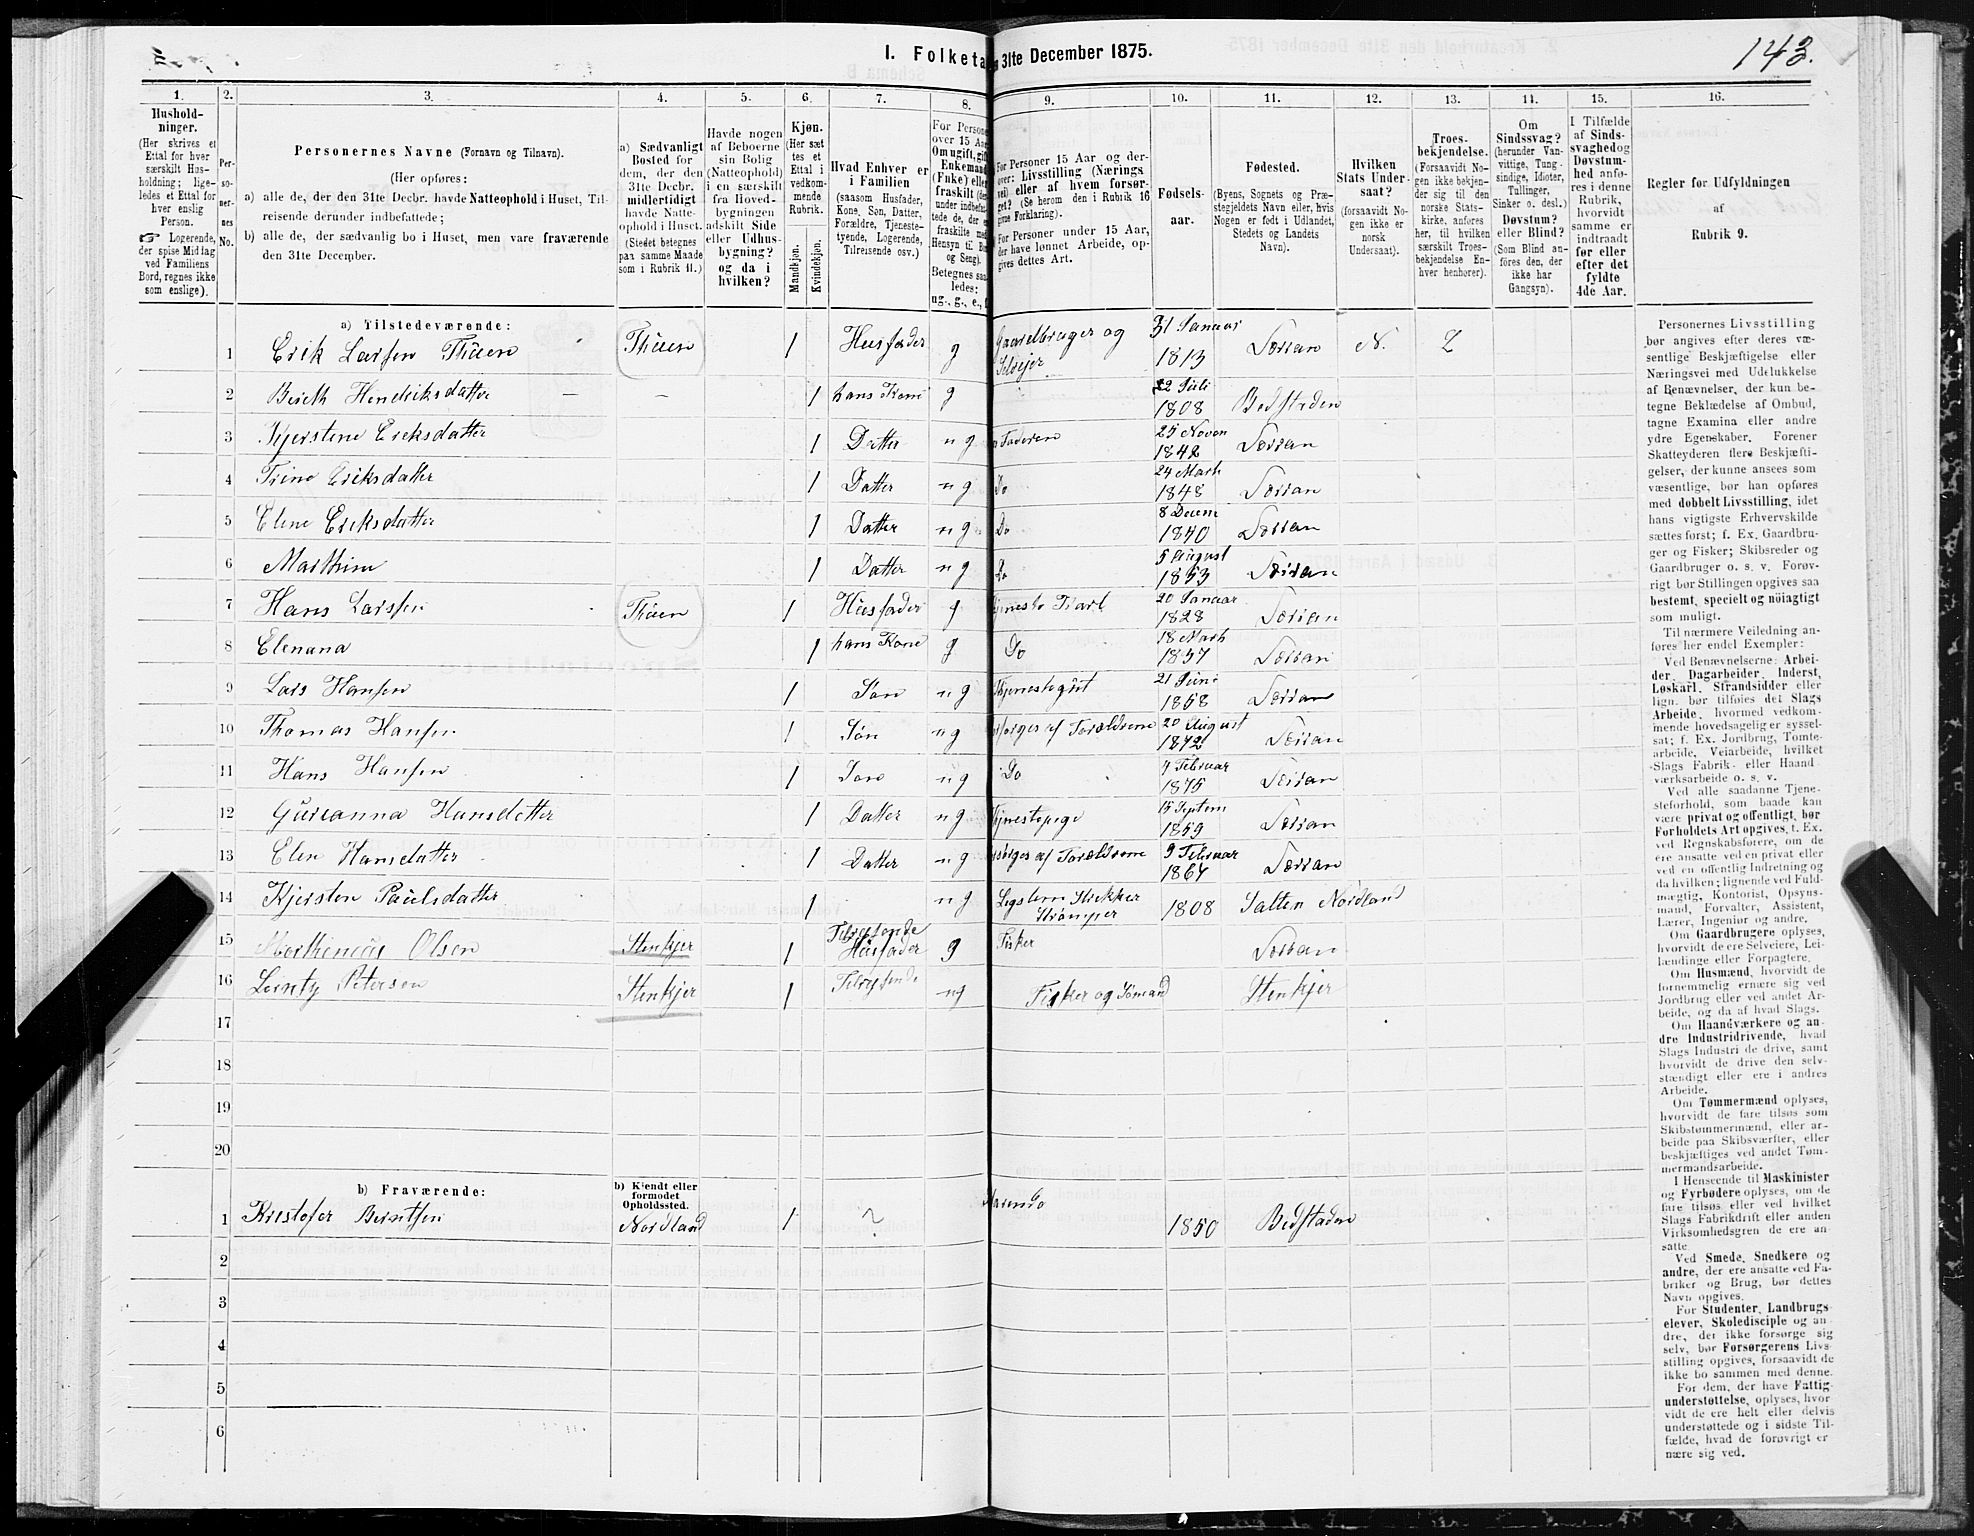 I. Folketa
n 31te December 1875.
143.
1.
2.
3.
4.
5.
6.
7.
8.
9.
10.
11.
12.
13.
14.
15.
16.
Hushold-
ninger.
(Her skrives et
Ettal for hver
særskilt Hus-
holdning; lige-
ledes et Ettal for
hver enslig
Person.
☞ Logerende,
der spise Middag
ved Familiens
Bord, regnes ikke
som enslige).
Per-
so-
ner-
nes
No.
Personernes Navne (Fornavn og Tilnavn).
(Her opføres:
a) alle de, der den 31te Decbr. havde Natteophold i Huset, Til-
reisende derunder indbefattede;
b) alle de, der sædvanlig bo i Huset, men vare fraværende
den 31te December.
a) Sædvanligt
Bosted for
dem, der den
31te Decbr.
midlertidigt
havde Natte-
ophold i Huset.
(Stedet betegnes
paa samme Maade
som i Rubrik 11.)
Havde nogen
af Beboerne
sin Bolig
(Natteophold)
i en særskilt
fra Hoved-
bygningen
adskilt Side
eller Udhus-
bygning?
og da i
hvilken?
Kjøn.
(Her sæt-
tes et
Ettal i
vedkom-
mende
Rubrik.
Mandkjøn.
Kvindekjøn.
Hvad Enhver er
i Familien
(saasom Husfader,
Kone, Søn, Datter,
Forældre, Tjeneste-
tyende, Logerende,
Tilreisende osv.)
For Persone
over 15 Aar
Om ugift, gift
Enkemand
(Enke) eller
fraskilt (der-
under indbefat-
tede de, der ere
fraskilte med
Hensyn til Bo
og Seng).
Betegnes saa-
ledes:
ug., g., e., f.
For Personer 15 Aar og der-
over: Livsstilling (Nærings
vei) eller af hvem forsør-
get? (Se herom den i Rubrik 16
givne Forklaring).
For Personer under 15 Aar,
der have lønnet Arbeide, op-
gives dettes Art.
Fødsels-
aar.
Fødested.
(Byens, Sognets og Præ-
stegjeldets Navn eller, hvis
Nogen er født i Udlandet,
Stedets og Landets
Navn).
Hvilken
Stats Under-
saat?
(forsaavidt No-
gen ikke er
norsk
Undersaat).
Troes-
bekjendelse.
(Forsaavidt No-
gen ikke bekjen-
der sig til den
norske Stats-
kirke, anføres
her, til hvilken
særskilt Troes-
bekjendelse En-
hver henhører).
Om
Sindssvag?
(herunder Van-
vittige, Tung-
sindige, Idioter,
Tullinger,
Sinker o. desl.)
Døvstum?
eller Blind?
(Som Blind an-
føres den, der
ikke har
Gangsyn).
I Tilfælde
af Sinds-
svaghed og
Døvstum-
hed anfø-
res i denne
Rubrik,
hvorvidt
samme er
indtraadt
før eller
efter det
fyldte
4de Aar.
Regler for Udfyldningen
af
Rubrik 9.
a) Tilstedeværende:
1 Erik Larsen Thüen Thüen 1 Husfader g Gaardbruger og Selveier 31 Januar 1813 Særsan N. 2
2 Berith Hendriksdatter — — 1 hans Kone g 22 Juli 1808 Bedstaden
3 Kjerstene Eriksdatter 1 Datter ug Faderen 25 Novem 1842 Særsan
4 Trine Eriksdatter 1 Datter ug Do 24 Marts 1848 Særsan
5 Elene Eriksdatter 1 Datter ug Do 8 Decem 1840 Særsan
6 Marthine 1 Datter ug Do 5 August 1853 Særsan
7 Hans Larsen Thüen 1 Husfader g Tjeneste Karl 20 Januar 1828 Særsan
8 Elenana 1 hans Kone g Do 18 Marts 1837 Særsan
9 Lars Hansen 1 Søn ug Tjenestegut 21 Juni 1858 Særsan
10 Thomas Hansen 1 Søn ug forsørges af Forældrene 20 August 1872 Særsan
11 Hans Hansen 1 Søn ug Do 4 Februar 1875 Særsan
12 Gurianna Hansdatter 1 Datter ug Tjenestepige 15 Septem 1859 Særsan
13 Elen Hansdatter 1 Datter ug forsørges af Forældrene 9 Februar 1864 Særsan
14 Kjersten Paulsdatter 1 ug Strikker Strømper 1808 Salten Nordland
15 Marthinus Olsen Stenkjer 1 Tilreisende Husfader g Fisker Særsan
16 Petersen Stenkjer 1 Tilreisende ug Fisker og Sømand Stenkjer
17
18
19
20
b) Fraværende:
b) Kjendt eller
formodet
Opholdssted.
1 Kristofer Berntsen Nordland 1 ? 1850 Bedstaden
2
3
4
5
6
Personernes Livsstilling
bør angives efter deres væ-
sentlige Beskjæftigelse eller
Næringsvei med Udelukkelse
af Benævnelser, der kun be-
tegne Beklædelse af Ombud,
tagne Examina eller andre
ydre Egenskaber. Forener
Skatteyderen flere Beskjæfti-
gelser, der kunne ansees som
væsentlige, bør han opføres
med dobbelt Livsstilling, idet
hans vigtigste Erhvervskilde
sættes først; f. Ex. Gaardbru-
ger og Fisker; Skibsreder og
Gaardbruger o. s. v. Forøv-
rigt bør Stillingen opgives saa
bestemt, specielt og nøiagtigt
som muligt.
Til nærmere Veiledning an-
føres her endel Exempler:
Ved Benævnelserne: Arbei-
der, Dagarbeider, Inderst,
Løskarl, Strandsidder eller
lign. bør tilføies det Slags
Arbeide, hvormed vedkom-
mende hovedsagelig er syssel-
sat; f. Ex. Jordbrug, Tomte-
arbeide, Veiarbeide, hvilket
Slags Fabrik- eller Haand-
værksarbeide o. s. v.
Ved alle saadanne Tjene-
steforhold, som baade kan
være privat og offentligt, bør
Forholdets Art opgives, f. Ex.
ved Regnskabsførere, om de
ere ansatte ved en privat eller
ved en offentlig Indretning og
da hvilken; lignende ved Fuld-
mægtig, Kontorist, Opsyns-
mand, Forvalter, Assistent,
Lærer, Ingeniør og andre.
Om Gaardbrugere opgives,
hvorvidt de ere Selveiere, Lei-
lændinge eller Forpagtere.
Om Husmænd, hvorvidt de
fornemmelig ernære sig ved
Jordbrug eller ved andet Ar-
beide, og da af hvad Slags.
Om Haandværkere og an-
dre Industridrivende, hvad
Slags Industri de drive, samt
hvorvidt de drive den selv-
stændigt eller ere i andres
Arbeide.
Om Tømmermænd oplyses,
hvorvidt de fare tilsøs som
Skibstømmermænd, eller ar-
beide paa Skibsværfter, eller
beskjæftiges ved andet Tøm-
mermandsarbeide.
I Henseende til Maskinister
og Fyrbødere oplyses, om de
fare tilsøs eller ved hvilket
Slags Fabrikdrift eller anden
Virksomhedsgren de ere an-
satte.
Ved Smede, Snedkere og
andre, der ere ansatte ved Fa-
briker og Brug, bør dettes
Navn opgives.
For Studenter, Landbrugs-
elever, Skoledisciple og an-
dre, der ikke forsørge sig
selv, bør Forsørgerens Livs-
stilling opgives, forsaavidt de
ikke bo sammen med denne.
For dem, der have Fattig-
understøttelse, oplyses, hvor-
vidt de ere helt eller delvis
understøttede og i sidste Til-
fælde, hvad de forøvrigt er-
nære sig ved.